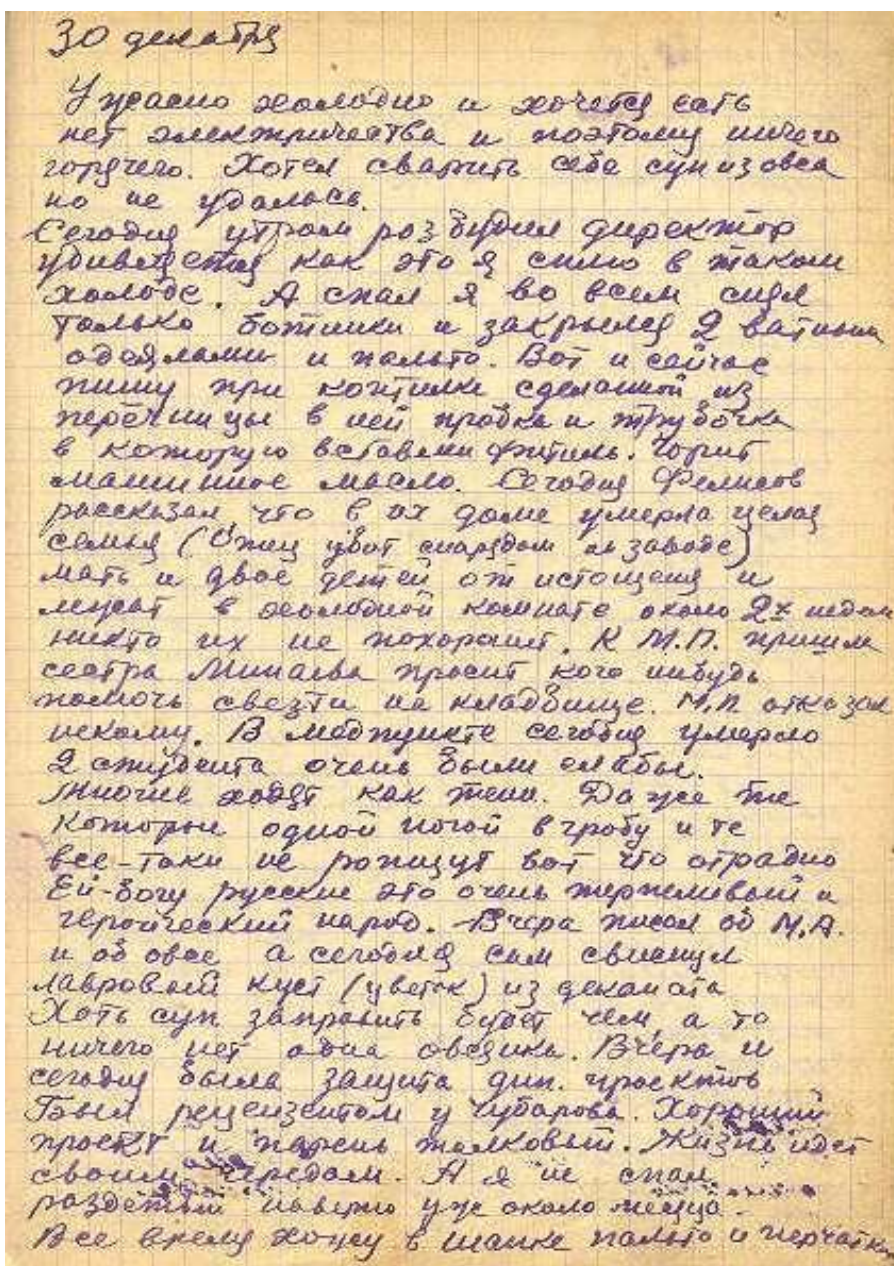 30 декабря
Ужасно холодно и хочется есть
нет электричества и поэтому ничего
горячего. Хотел сварить себе суп из овса
но не удалось.
Сегодня утром розбудил директор
удивляется как это я сплю в таком
холоде. А спал я во всем снял
только ботинки и закрылся 2 ватными
одеялами и пальто. Вот и сейчас
пишу при коптилке сделанной из
перечницы в ней пробка и трубочка
в которую вставлен фитиль. Горит
машинное масло. Сегодня Фелисов
рассказал что в их доме умерла целая
семья (Отец убит снарядом на заводе)
мать и двое детей от истощения и
лежат в холодной комнате около 2х недель
никто их не похоронит. К М.П. пришла
сестра Минаева просит кого нибудь
помочь свезти на кладбище. М.П. отказал
некому. В медпункте сегодня умерло
2 студента очень были слабы.
Многие ходят как тени. Да уже те
которые одной ногой в гробу и те
все-таки не ропщут вот что отрадно
Ей-богу русские это очень терпеливый и
героический народ. Вчера писал об М.А.
и об овсе а сегодня сам свиснул
лавровый куст (цветок) из деканата
Хоть суп заправить будет чем, а то
ничего нет одна овсянка. Вчера и
сегодня была защита дип. проектов
Был рецензентом у Чубарова. Хороший
проект и парень толковый. Жизнь идет
своим чередом. А я не спал
раздетый наверно уже около месяца.
Все время хожу в шапке пальто и перчатках